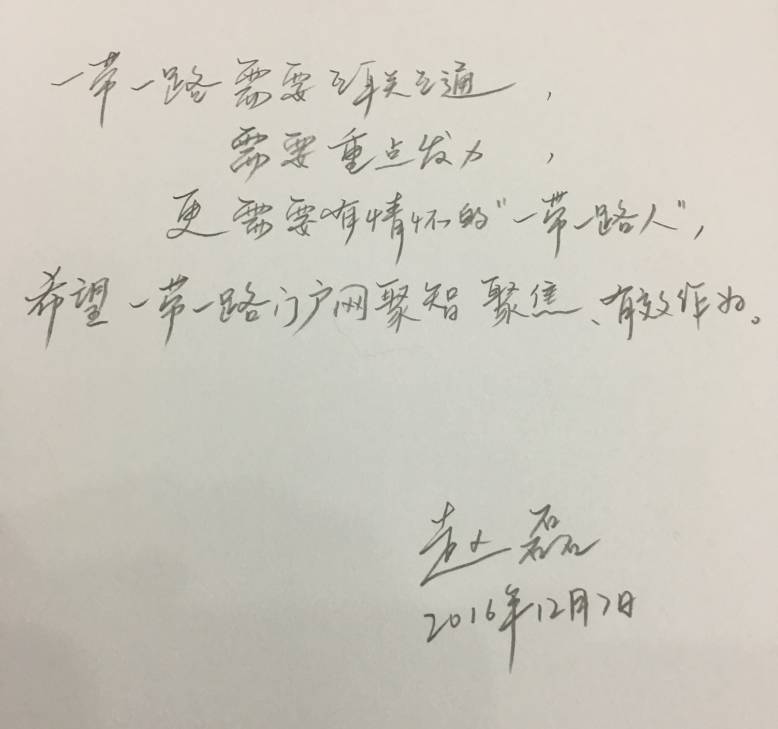 一带一路需要互联互通，
需要重点发力，
更需要有情怀的“一带一路人”，
希望一带一路门户网聚智聚焦、有效作为。
赵磊
2016年12月7日